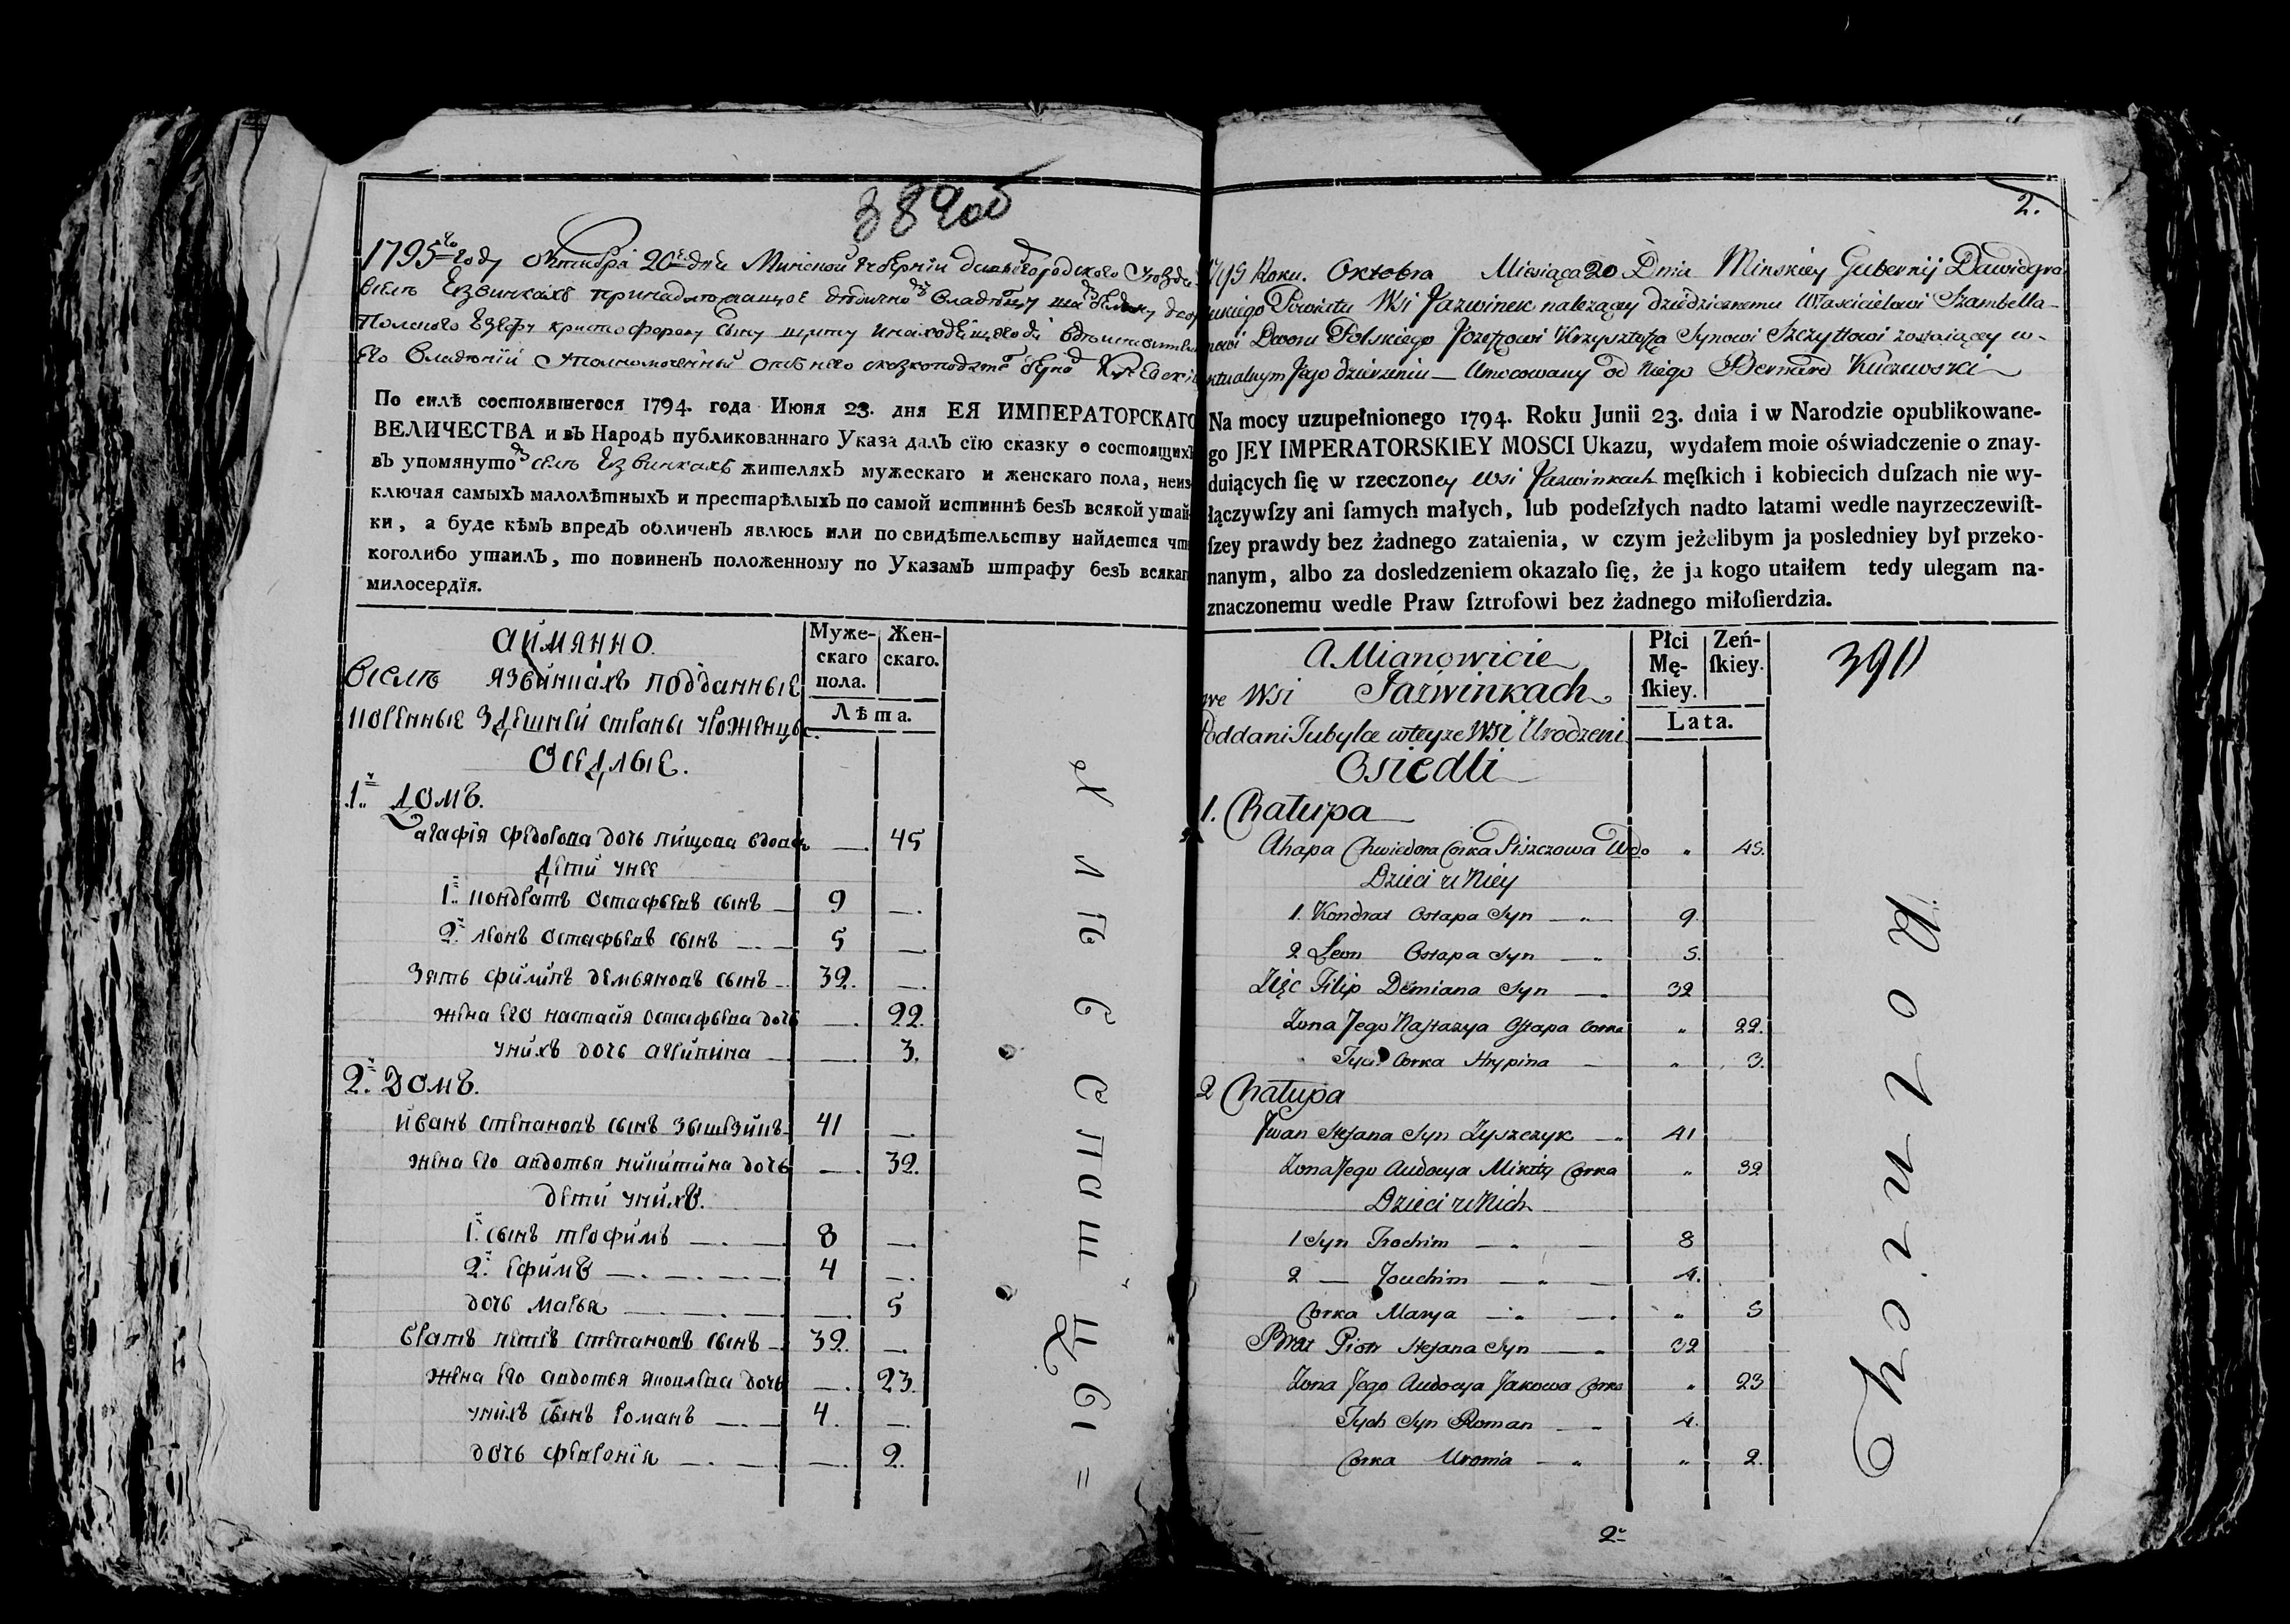 389об
1795го году октября 20го дня Минской губернии
вселѣ Езвинкахъ
По силѣ состоявшегося 1794. года Июня 23. дня ЕЯ ИМПЕРАТОРСКАГО
ВЕЛИЧЕСТВА и въ Народъ публикованнаго Указа далъ сїю сказку о состоящихъ
въ упомянутомъ селѣ Езвинкахъ жителяхъ мужескаго и женскаго пола, неиз
ключая самыхъ малолѣтныхъ и престарѣлыхъ по самой истиннѣ безъ всякой утай
ки, а буде кѣмъ впредь обличенъ явлюсь или по свидѣтельству найдется что
коголибо утаилъ, то повиненъ положенному по Указамъ штрафу безъ всякаго
милосердїя.
аймянно.
вселѣ язвинкахъ подданные
коренные здешней страны уроженцы.
оседлые.
Муже-скаго пола.
Жен-скаго.
Лѣта.
1й домъ.
агафїя федорова дочь пищова вдова — 45
дети унее
1й кондратъ остафьевъ сынъ — 9 —.
2й леонъ остафьевъ сынъ — 5 —.
зять филипъ демьяновъ сынъ — 32. —.
жена его настасïя остафьева дочь —. 22.
унихъ дочь агрипина — —. 3.
2й домъ.
иванъ степановъ сынъ 41 —.
жена его авдотья никитина дочь —. 32.
дети унихъ.
1й сынъ трофимъ — 8 —.
2й ефимъ — 4 —.
дочь марья — —. 5
братъ петръ степановъ сынъ — 32. —.
жена его авдотья яковлева дочь —. 23.
унихъ сынъ романъ — 4. —.
дочь февронïя — —. 2.
2.
1795 Roku. Oktobra Miesiąca 20 Dnia Minskiey Gubernij Dawidgro
dzkiego Powiatu Wsi Jazwinek nalezącey dziedzicznemu Włascicielowi Szambella-
nowi Dworu Polskiego Jozefowi Krzysztofa Synowi Szczyttowi zostaiącey w-
aktualnym Jego dzierzeniu — Umocowany od Niego Bernard Kuczewski
Na mocy uzupełnionego 1794. Roku Junii 23. dnia i w Narodzie opublikowane-
go JEY IMPERATORSKIEY MOSCI Ukazu, wydałem moie oświadczenie o znay-
duiących ſię w rzeczoney Wsi Jazwinkach męſkich i kobiecich duſzach nie wy-
łączywſzy ani ſamych małych, lub podeſzłych nadto latami wedle nayrzeczewiſt-
ſzey prawdy bez żadnego zataienia, w czym jeżelibym ja posledniey był przeko-
nanym, albo za dosledzeniem okazało ſię, że ja kogo utaiłem tedy ulegam na-
znaczonemu wedle Praw ſztrofowi bez żadnego miłoſierdzia.
A Mianowicie
we Wsi Jazwinkach
Poddani Tubylce wteyze Wsi Urodzeni
Osiedli
Płci Mę-ſkiey.
Zeń-ſkiey.
Lata.
391
1. Chałupa
Ahapa Chwiedora Corka Piszczowa Wdo „ 45.
Dzieci u Niey
1. Kondrat Ostapa Syn — 9.
2 Leon Ostapa Syn — 5.
Zięc Filip Demiana Syn — 32
Zona Jego Nastazya Ostapa Corka „ 22.
Tych Corka Hrypina — „ 3.
2 Chałupa
Jwan Stefana Syn Zyszczyk — 41
Zona Jego Audocya Mikity Corka „ 32
Dzieci u Nich
1 Syn Trochim — 8
2 — Jouchim — 4.
Corka Marya — „ 5
Brat Piotr Stefana Syn — 32
Zona Jego Audocya Jakowa Corka „ 23
Tych Syn Roman — 4.
Corka Uronia — „ 2.
2й